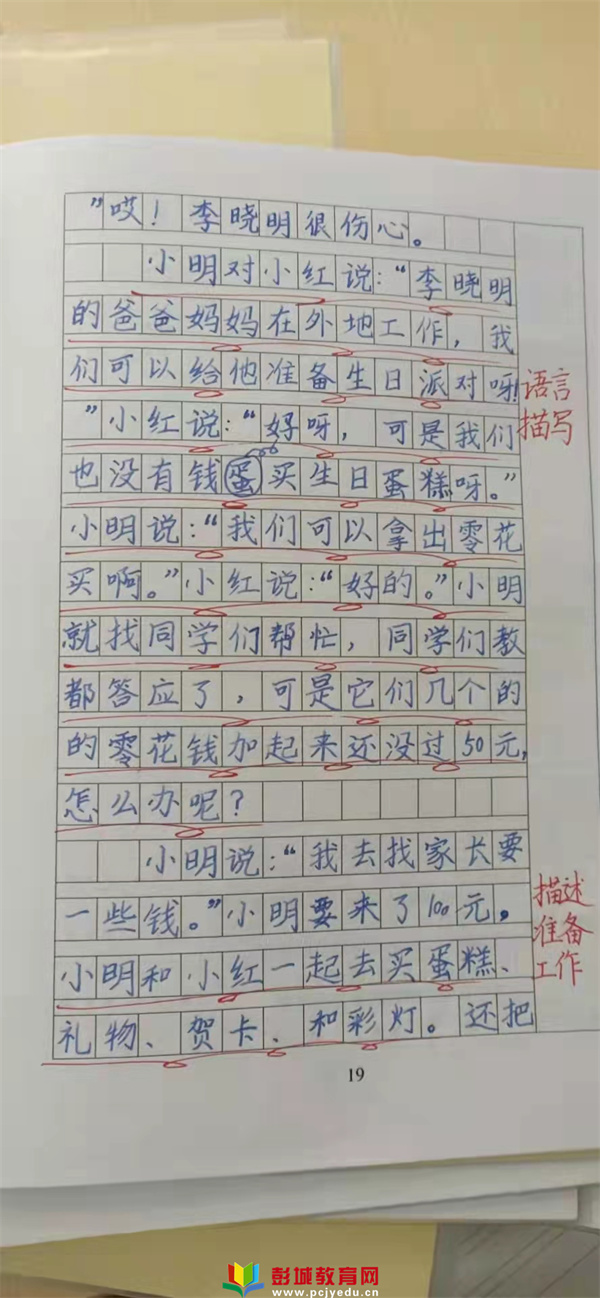 ”哎！李晓明很伤心。
小明对小红说：“李晓明
的爸爸妈妈在外地工作，我
们可以给他准备生日派对呀！
”小红说：“好呀，可是我们
也没有钱蛋买生日蛋糕呀。”
小明说：“我们可以拿出零花
买啊。”小红说：“好的。”小明
就找同学们帮忙，同学们教
都答应了，可是它们几个的
的零花钱加起来还没过50元，
怎么办呢？
小明说：“我去找家长要
一些钱。”小明要来了100元。
小明和小红一起去买蛋糕、
礼物、贺卡、和彩灯。还把
语言
描写
描述
准备
工作
19
彭城教育网
www.pcjyedu.cn